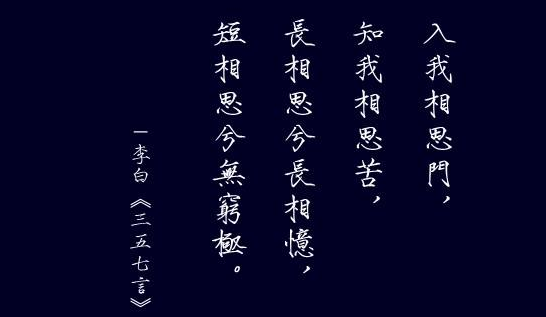 入我相思門，
知我相思苦，
長相思兮長相憶，
短相思兮無窮極。
—李白《三五七言》